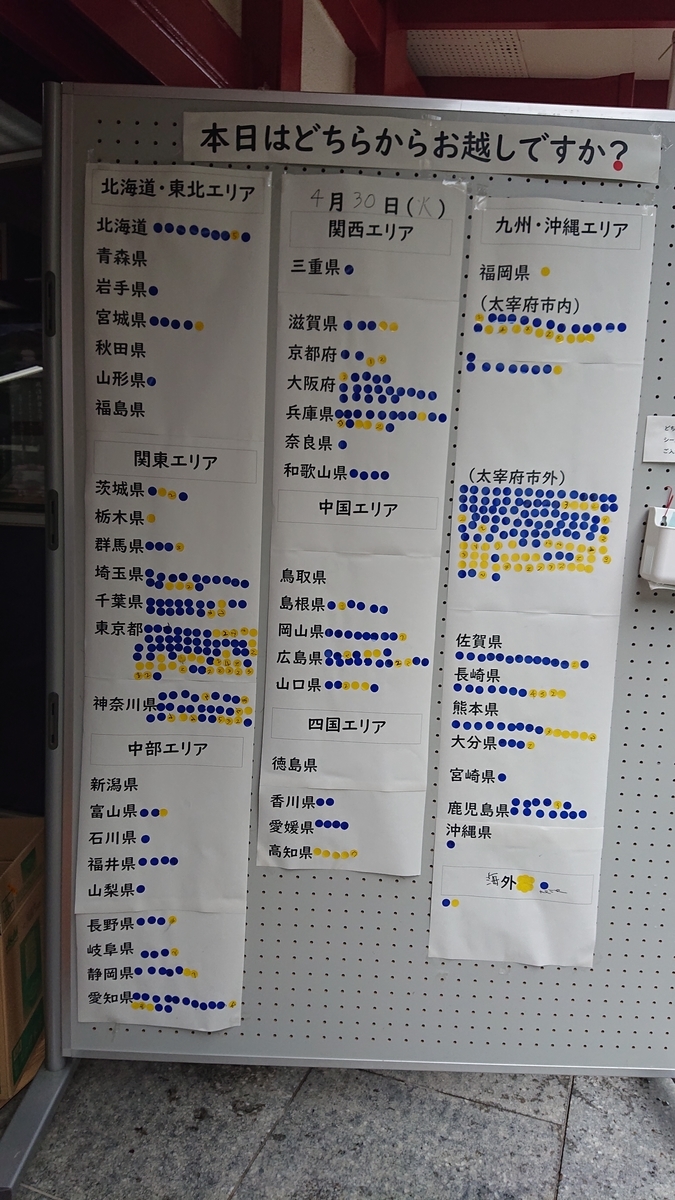 本日はどちらからお越しですか?
北海道・東北エリア
北海道
青森県
岩手県
宮城県
秋田県
山形県
福島県
関東エリア
茨城県
栃木県
群馬県
埼玉県
千葉県
東京都
神奈川県
中部エリア
新潟県
富山県
石川県
福井県
山梨県
長野県
岐阜県
静岡県
愛知県
4月30日(火)
関西エリア
三重県
滋賀県
京都府
大阪府
兵庫県
奈良県
和歌山県
中国エリア
鳥取県
島根県
岡山県
広島県
山口県
四国エリア
徳島県
香川県
愛媛県
高知県
九州・沖縄エリア
福岡県
(太宰府市内)
(太宰府市外)
佐賀県
長崎県
熊本県
大分県
宮崎県
鹿児島県
沖縄県
海外